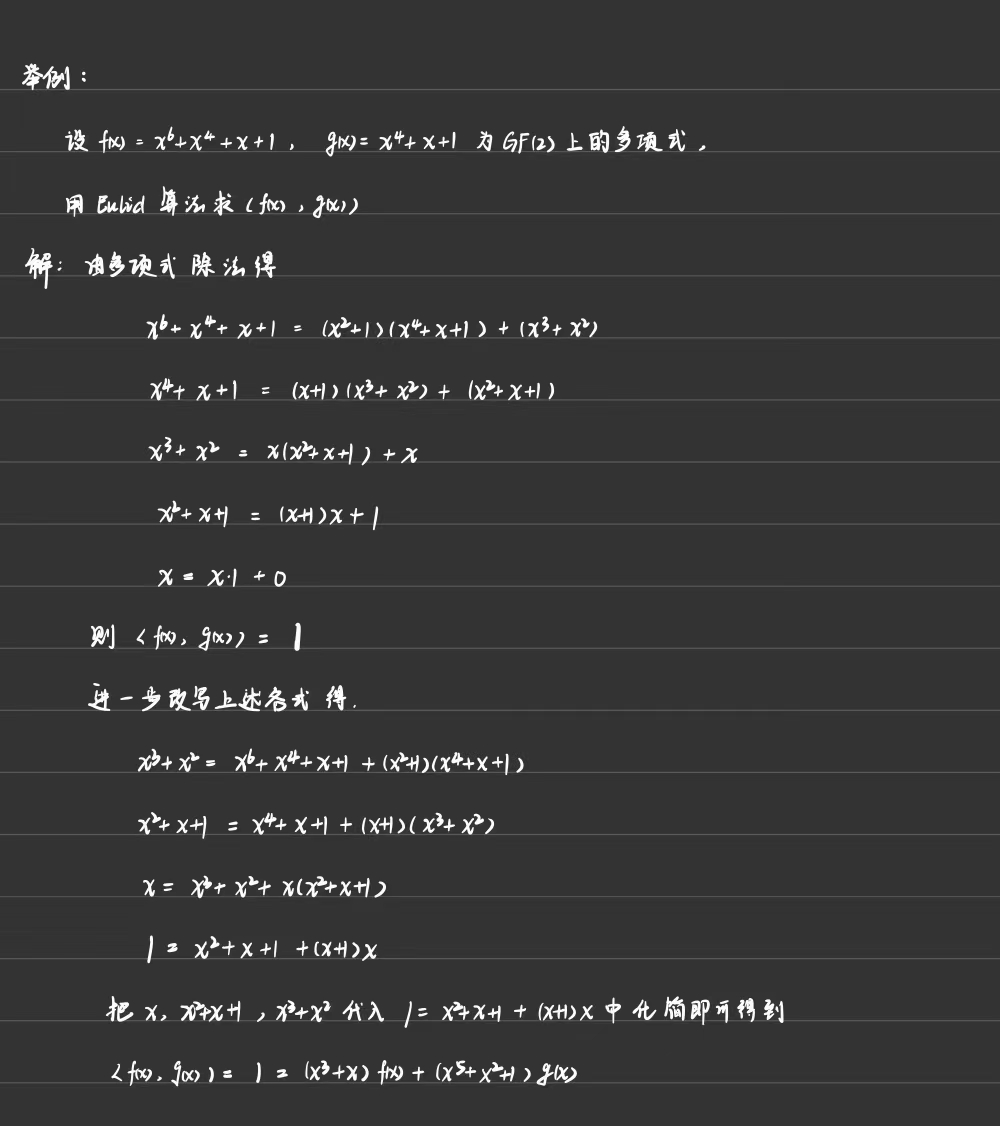 举例：
设 f(x) = x⁶+x⁴+x+1， g(x)= x⁴+x+1 为 GF(2) 上的多项式，
用 Eulid 算法求 (f(x)，g(x))
解：由多项式除法得
x⁶+x⁴+x+1 = (x²+1)(x⁴+x+1)+(x³+x²)
x⁴+x+1 = (x+1)(x³+x²)+(x²+x+1)
x³+x² = x(x²+x+1)+x
x²+x+1 = (x+1)x+1
x = x·1 + 0
则 (f(x), g(x)) = 1
进一步改写上述各式得.
x³+x² = x⁶+x⁴+x+1+(x²+1)(x⁴+x+1)
x²+x+1 = x⁴+x+1+(x+1)(x³+x²)
x = x³+x²+x(x²+x+1)
1 = x²+x+1+(x+1)x
把 x, x²+x+1，x³+x² 代入 1= x²+x+1+(x+1)x 中化简即可得到
(f(x), g(x)) = 1 = (x³+x) f(x)+(x⁵+x²+1) g(x)